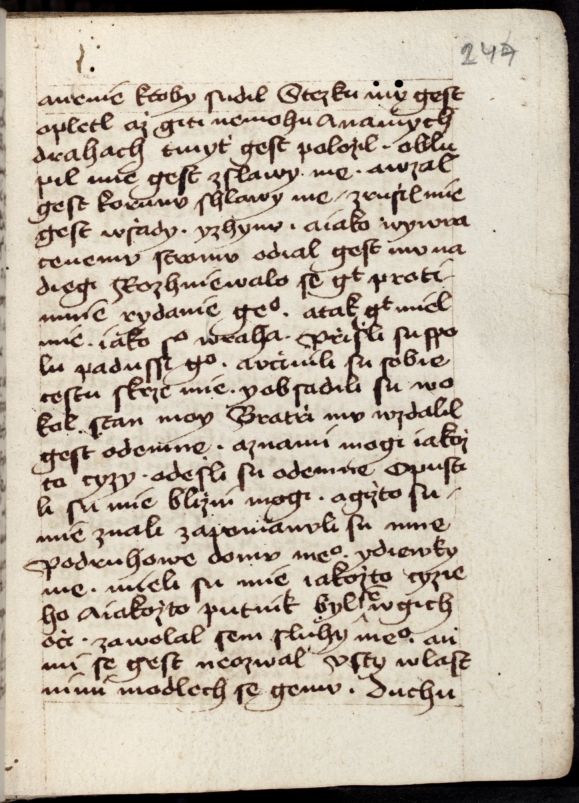 244
anenie ktoby sudil Stezku my gest
opletl až giti nemohu A na mych
drahach tmyť gest položil · obłu
pil mie gest z slawy me · a wzal
gest korunu s hlawy me · zrušil mie
gest wšady · y zhynu · a iako wywra
cenemu stromu odial gest mu na
diegi Rozhniewalo se gt proti
mnie rydanie geo · a tak gt miel
mie · iako so wraha · Přišli su spo
lu padussi go · a včinili su sobie
cestu skrze mie · y obsadili su wo
kol stan moy Bratři my wzdalil
gest odemne · a znami mogi iakož
to cyzy · odešli su odemne Opusti
li su mie bližni mogi · a gižto su
mie znali zapomanuli su mne
Podruhowe domu meo · y diewky
me · mieli su mie iakožto cyzie
ho A iakožto putnik byl sē w gich
oči · zawolal sem sluhy meo · a ni
mi se gest neozwal Vsty wlast
nimi modlech se gemu · Duchu